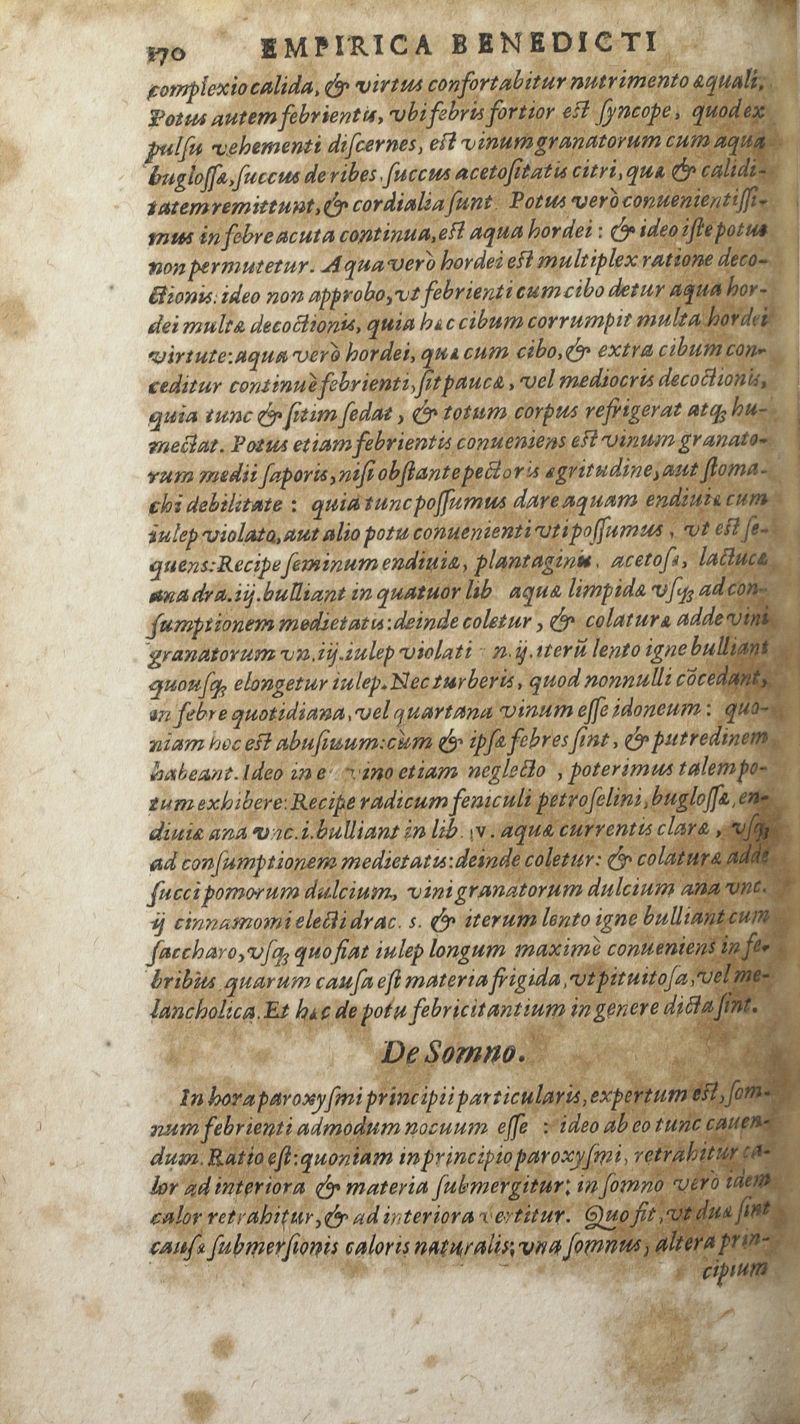 170 EMPIRICA BENEDICTI
complexio calida, & virtus confortabitur nutrimento æquali.
Potus autem febrientis, vbi febris fortior est syncope, quod ex
pulsu vehementi discernes, est vinum granatorum cum aqua
buglossæ, succus de ribes, succus acetositatis citri, quæ & calidi-
tatem remittunt, & cordialia sunt. Potus verò conuenientissi-
mus in febre acuta continua, est aqua hordei: & ideo iste potus
non permutetur. Aqua verò hordei est multiplex ratione deco-
ctionis: ideo non approbo, vt febrienti cum cibo detur aqua hor-
dei multæ decoctionis, quia hæc cibum corrumpit multa hordei
virtute: aqua verò hordei, quæ cum cibo, & extra cibum con-
ceditur continuè febrienti, sit paucæ, vel mediocris decoctionis,
quia tunc & sitim sedat, & totum corpus refrigerat atq; hu-
mectat. Potus etiam febrientis conueniens est vinum granato-
rum medii saporis, nisi obstante pectoris ægritudine, aut stoma-
chi debilitate: quia tunc possumus dare aquam endiuiæ cum
iulep violato, aut alio potu conuenienti vti possumus, vt est se-
quens: Recipe seminum endiuiæ, plantaginis, acetosæ, lactucæ
ana dra. iij. bulliant in quatuor lib aquæ limpidæ vsq; ad con-
sumptionem medietatis: deinde coletur, & colaturæ adde vini
granatorum vn. iij. iulep violati n. ij. iterū lento igne bulliant
quousq; elongetur iulep. Nec turberis, quod nonnulli cōcedant,
in febre quotidiana, vel quartana vinum esse idoneum: quo-
niam hoc est abusiuum: cùm & ipsæ febres sint, & putredinem
habeant. Ideo in e vino etiam neglecto, poterimus talem po-
tum exhibere: Recipe radicum feniculi petroselini, buglossæ, en-
diuiæ ana vnc. i. bulliant in lib. iv. aquæ currentis claræ, vsq;
ad consumptionem medietatis: deinde coletur: & colaturæ adde
succi pomorum dulcium, vini granatorum dulcium ana vnc.
ij cinnamomi electi drac. s. & iterum lento igne bulliant cum
saccharo, vsq; quo fiat iulep longum maximè conueniens in fe-
bribus quarum causa est materia frigida, vt pituitosa, vel me-
lancholica. Et hæc de potu febricitantium in genere dicta sint.
De Somno.
In hora paroxysmi principii particularis, expertum est, som-
num febrienti admodum nocuum esse: ideo ab eo tunc cauen-
dum. Ratio est: quoniam in principio paroxysmi, retrahitur ca-
lor ad interiora & materia submergitur: in somno verò idem
calor retrahitur, & ad interiora vertitur. Quo fit, vt duæ sint
causæ submersionis caloris naturalis; vna somnus, altera prin-
cipium